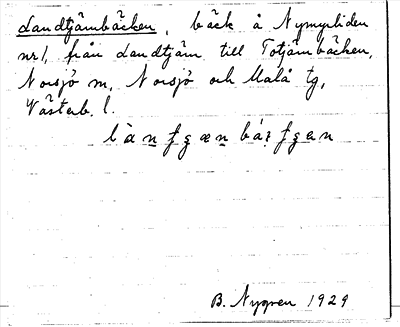 Landtjärnbäcken, bäck å Nymyrliden
nr 1, från Landtjärn till Totjärnbäcken,
Norsjö sn, Norsjö och Malå tg,
Västerb. l.
B. Nygren 1929